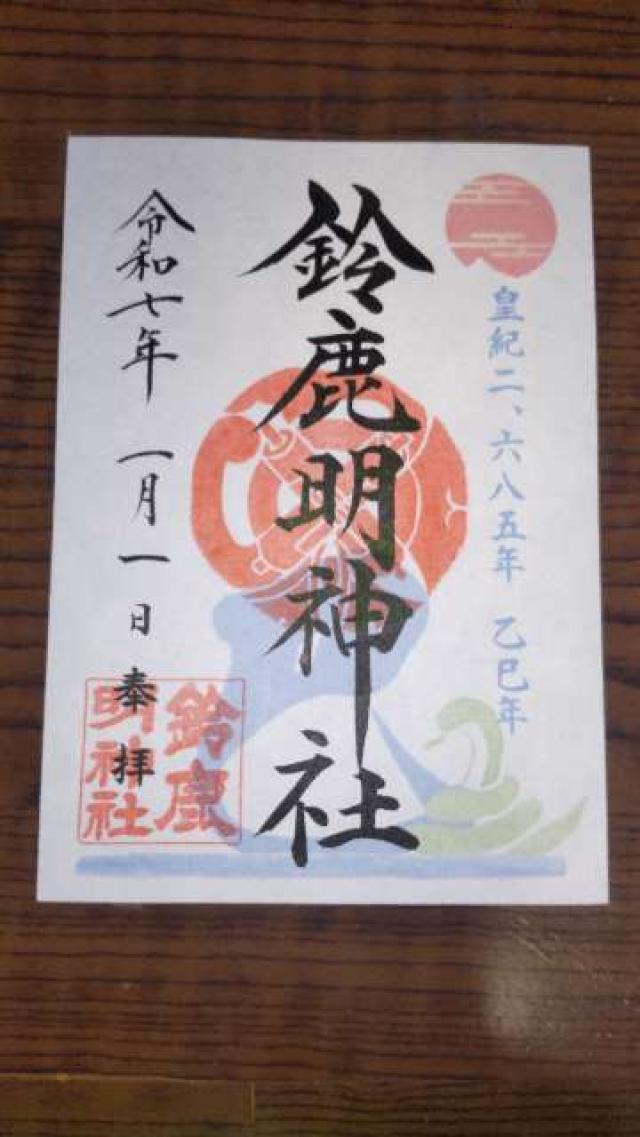 皇紀二、六八五年 乙巳年
鈴鹿明神社
令和七年 一月一日 奉拝
鈴鹿
明神社